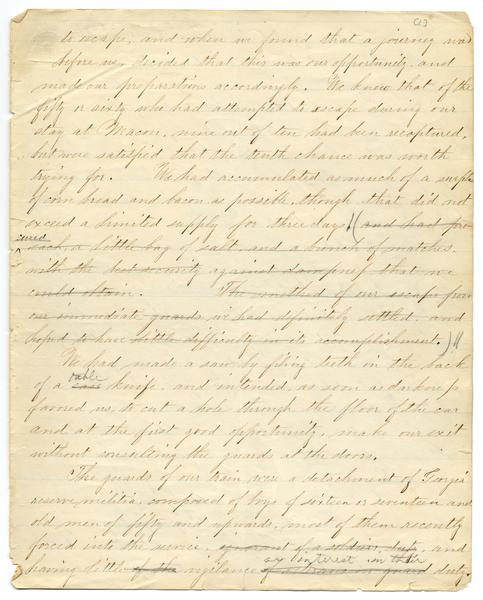 (2)
to escape, and when we found that a journey was
before us, decided that this was our opportunity, and
made our preparations accordingly. We knew that of the
fifty or sixty who had attempted to escape during our
stay at Macon, nine out of ten had been recaptured,
but were satisfied that the tenth chance was worth
trying for. We had accumulated as much of a surplus
of corn bread and bacon as possible, though that did not
exceed a limited supply for three days! (and had pro-
cured
each, a little bag of salt and a bunch of matches
with the best security against dampness that we
could obtain. The method of our escape from
our immediate guards we had definitely settled, and
hoped to have little difficulty in its accomplishment.)
We had made a saw by filing teeth in the back
of a case table knife, and intended, as soon as darkness
favored us, to cut a hole through the floor of the car
and at the first good opportunity, make our exit
without consulting the guard at the doors.
The guards of our train were a detachment of Georgia
reserve militia, composed of boys of sixteen or seventeen and
old men of fifty and upwards, most of them recently
forced into the service, ignorant of a soldier's duty, and
having little of the vigilance or interest in their duty.